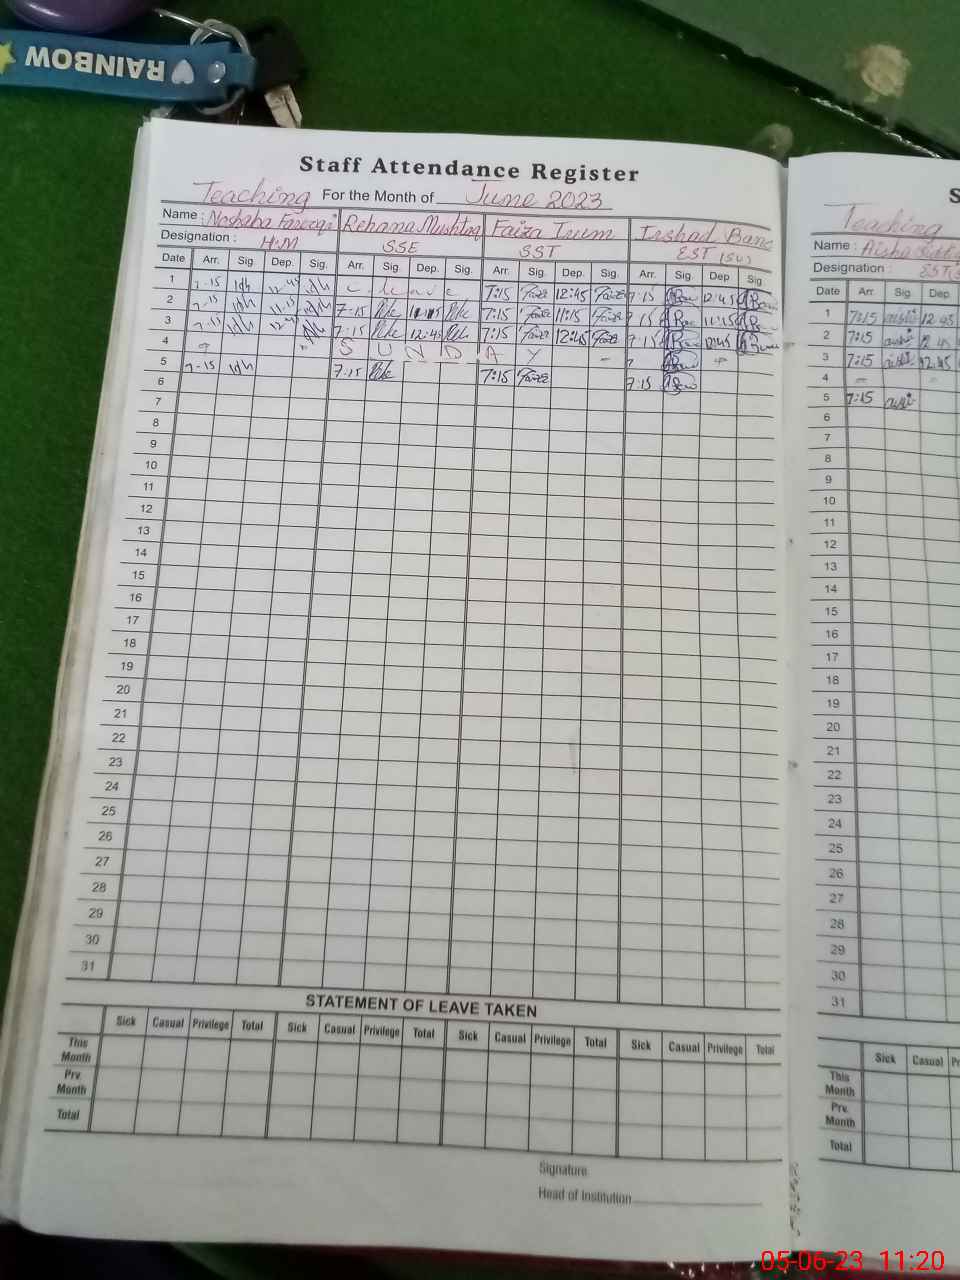 RAINBOW
Staff Attendance Register
Teaching For the Month of June 2023
Name : Noshaba Farooqi Rehana Mushtaq Faiza Irum Irshad Bano
Designation : H.M SSE SST EST
Date Arr. Sig. Dep. Sig. Arr. Sig. Dep. Sig. Arr. Sig. Dep. Sig. Arr. Sig. Dep Sig.
1 7-15 12-45 C. leave 7:15 Faiza 12:45 Faiza 7:15 12:45
2 7-15 11-15 7:15 11:15 7:15 Faiza 11:15 Faiza 7:15 11:15
3 7-15 12-45 7:15 12:45 7:15 Faiza 12:45 Faiza 7:15 12:45
4 S U N D A Y
5 7-15 7:15 7:15 Faiza 7:15
6
7
8
9
10
11
12
13
14
15
16
17
18
19
20
21
22
23
24
25
26
27
28
29
30
31
STATEMENT OF LEAVE TAKEN
Sick Casual Privilege Total Sick Casual Privilege Total Sick Casual Privilege Total Sick Casual Privilege Total
This Month
Prv. Month
Total
Signature
Head of Institution
S
Teaching
Name : Aisha
Designation : EST
Date Arr. Sig. Dep
1 7:15 12:45
2 7:15 12:45
3 7:15 12:45
4
5 7:15
6
7
8
9
10
11
12
13
14
15
16
17
18
19
20
21
22
23
24
25
26
27
28
29
30
31
Sick Casual Pr
This Month
Prv. Month
Total
05-06-23 11:20